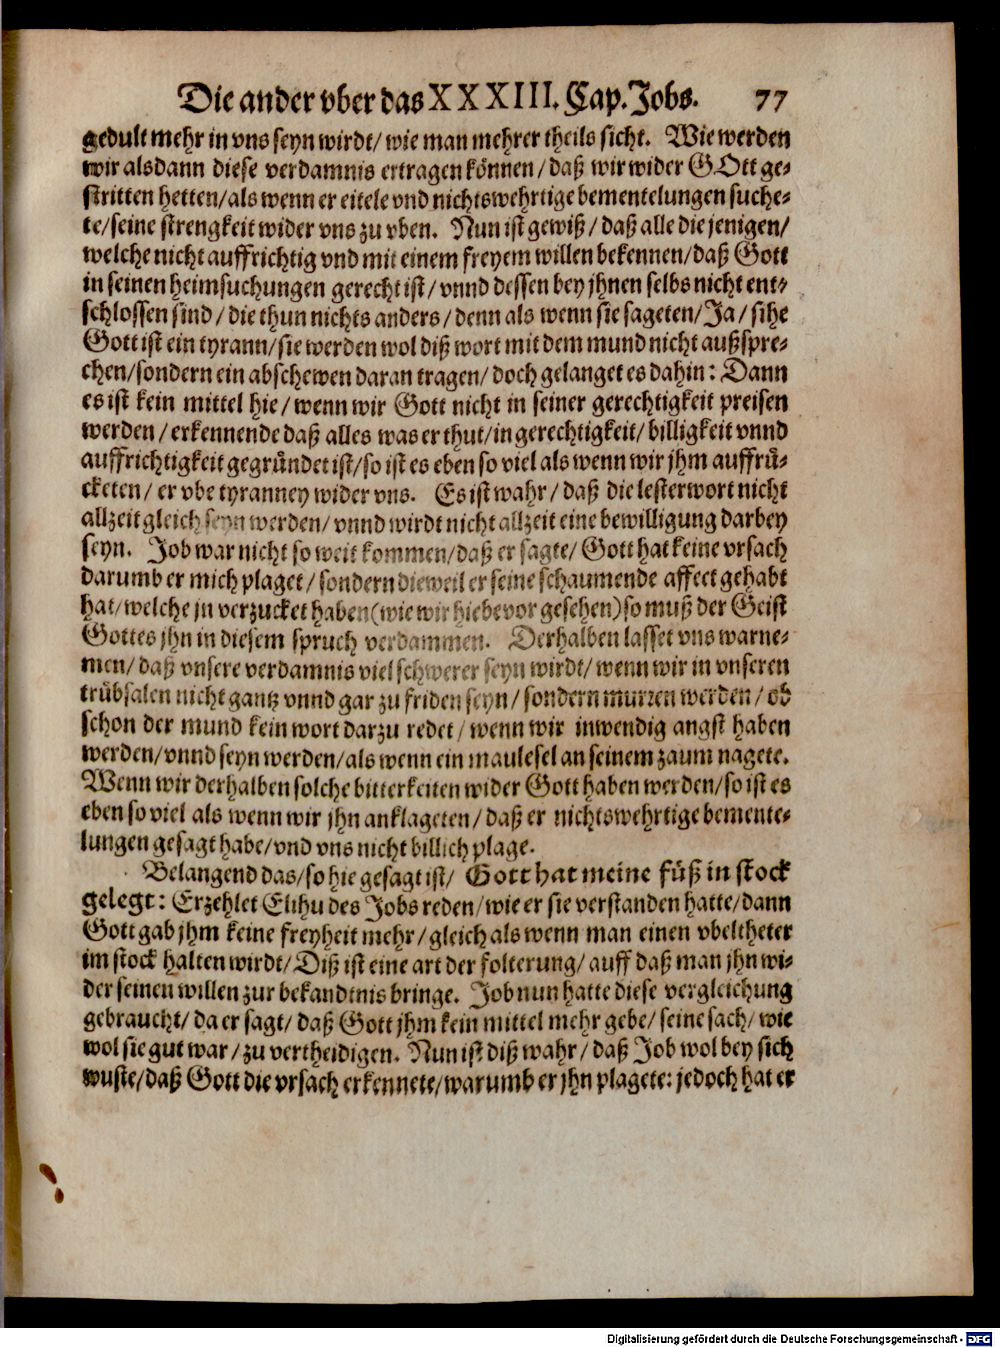 Die ander vber das XXXIII. Cap. Jobs. 77
gedult mehr in vns seyn wirdt/ wie man mehrer theils sicht. Wie werden
wir alsdann diese verdamnis ertragen können/ daß wir wider GOtt ge-
stritten hetten/ als wenn er eitele vnd nichtswehrtige bementelungen suche-
te/ seine strengkeit wider vns zu vben. Nun ist gewiß/ daß alle die jenigen/
welche nicht auffrichtig vnd mit einem freyem willen bekennen/ daß Gott
in seinen heimsuchungen gerecht ist/ vnnd dessen bey jhnen selbs nicht ent-
schlossen sind/ die thun nichts anders/ denn als wenn sie sageten/ Ja/ sihe
Gott ist ein tyrann/ sie werden wol diß wort mit dem mund nicht außspre-
chen/ sondern ein abschewen daran tragen/ doch gelanget es dahin: Dann
es ist kein mittel hie/ wenn wir Gott nicht in seiner gerechtigkeit preisen
werden/ erkennende daß alles was er thut/ in gerechtigkeit/ billigkeit vnnd
auffrichtigkeit gegründet ist/ so ist es eben so viel als wenn wir jhm auffrü-
cketen/ er vbe tyranney wider vns. Es ist wahr/ daß die lesterwort nicht
allzeit gleich seyn werden/ vnnd wirdt nicht allzeit eine bewilligung darbey
seyn. Job war nicht so weit kommen/ daß er sagte/ Gott hat keine vrsach
darumb er mich plaget/ sondern dieweil er seine schaumende affect gehabt
hat/ welche jn verzucket haben (wie wir hiebevor gesehen) so muß der Geist
Gottes jhn in diesem spruch verdammen. Derhalben lasset vns warne-
men/ daß vnsere verdamnis viel schwerer seyn wirdt/ wenn wir in vnseren
trübsalen nicht gantz vnnd gar zu friden seyn/ sondern murren werden/ ob
schon der mund kein wort darzu redet/ wenn wir inwendig angst haben
werden/ vnnd seyn werden/ als wenn ein maulesel an seinem zaum nagete.
Wenn wir derhalben solche bitterkeiten wider Gott haben werden/ so ist es
eben so viel als wenn wir jhn anklageten/ daß er nichtswehrtige bemente-
lungen gesagt habe/ vnd vns nicht billich plage.
Belangend das/ so hie gesagt ist/ Gott hat meine füß in stock
gelegt: Erzehlet Elihu des Jobs reden/ wie er sie verstanden hatte/ dann
Gott gab jhm keine freyheit mehr/ gleich als wenn man einen vbeltheter
im stock halten wirdt/ Diß ist eine art der folterung/ auff daß man jhn wi-
der seinen willen zur bekandtnis bringe. Job nun hatte diese vergleichung
gebraucht/ da er sagt/ daß Gott jhm kein mittel mehr gebe/ seine sach/ wie
wol sie gut war/ zu vertheidigen. Nun ist diß wahr/ daß Job wol bey sich
wuste/ daß Gott die vrsach erkennete/ warumb er jhn plagete: jedoch hat er
Digitalisierung gefördert durch die Deutsche Forschungsgemeinschaft - DFG